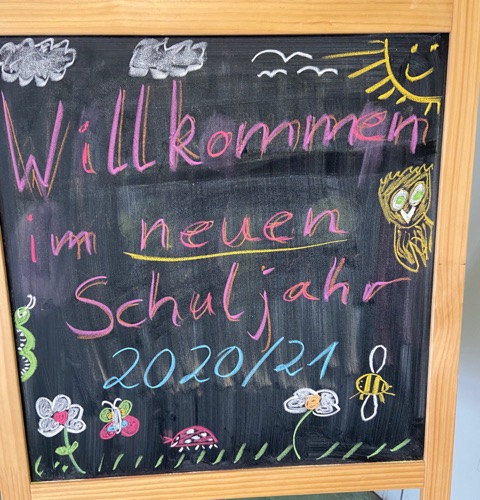 Willkommen
im neuen
Schuljahr
2020/21